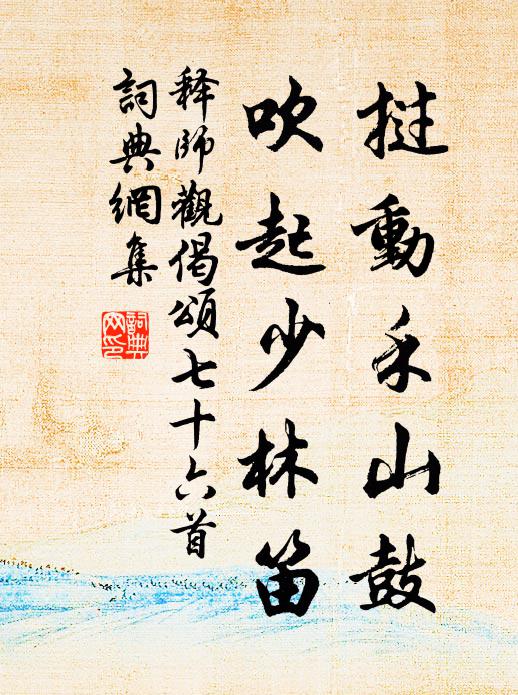 挞動禾山鼓
吹起少林笛
释師觀偈頌七十六首
詞典網集
詞典网印